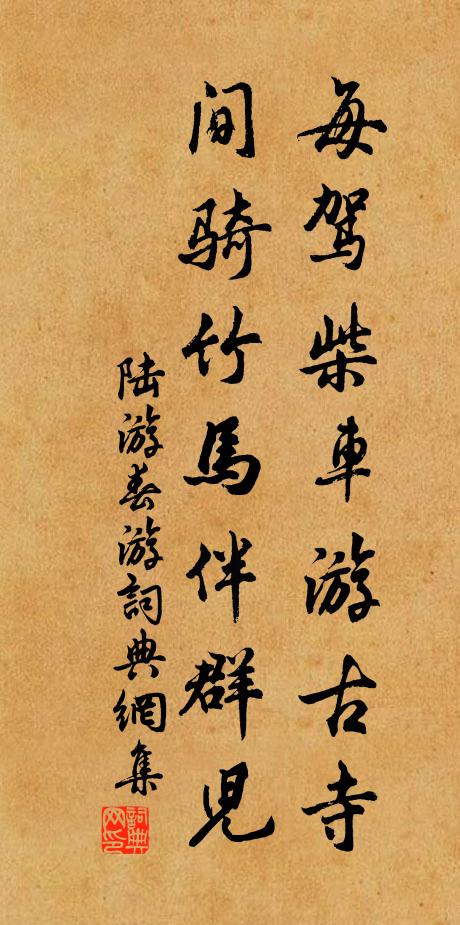 每駕柴車游古寺
间騎竹馬伴群児
陆游春游詞典網集
詞典网印